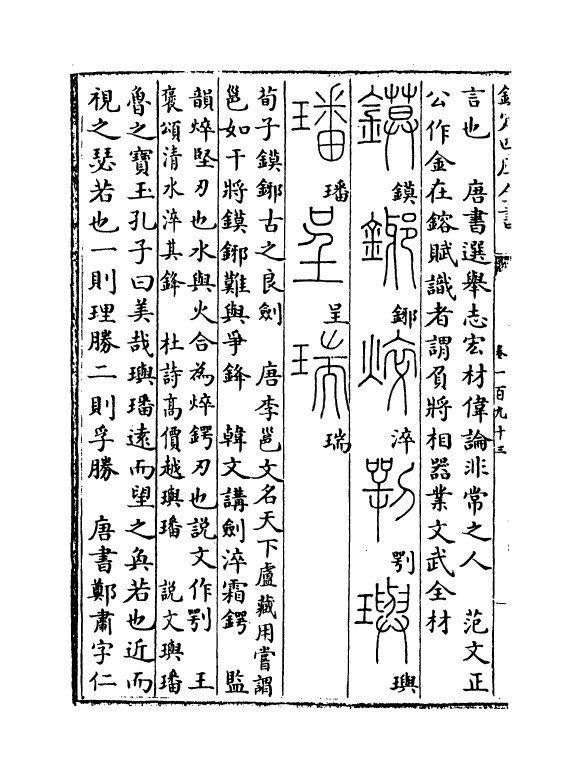 欽定四庫全書
卷一百九十三
言也　唐書選舉志宏材偉論非常之人　范文正
公作金在鎔賦識者謂負將相器業文武全材
鏌鋣焠㓵璵
鏌　鋣　淬　㓵　璵
璠呈瑞
璠　呈　瑞
荀子鏌鋣古之良劍　唐李邕文名天下盧藏用嘗謂
邕如干將鏌鋣難與爭鋒　韓文講劍淬霜鍔　監
韻焠堅刃也水與火合為焠鍔刃也説文作㓵　王
褒頌清水淬其鋒　杜詩高價越璵璠　説文璵璠
魯之寶玉孔子曰美哉璵璠遠而望之奐若也近而
視之瑟若也一則理勝二則孚勝　唐書鄭肅字仁